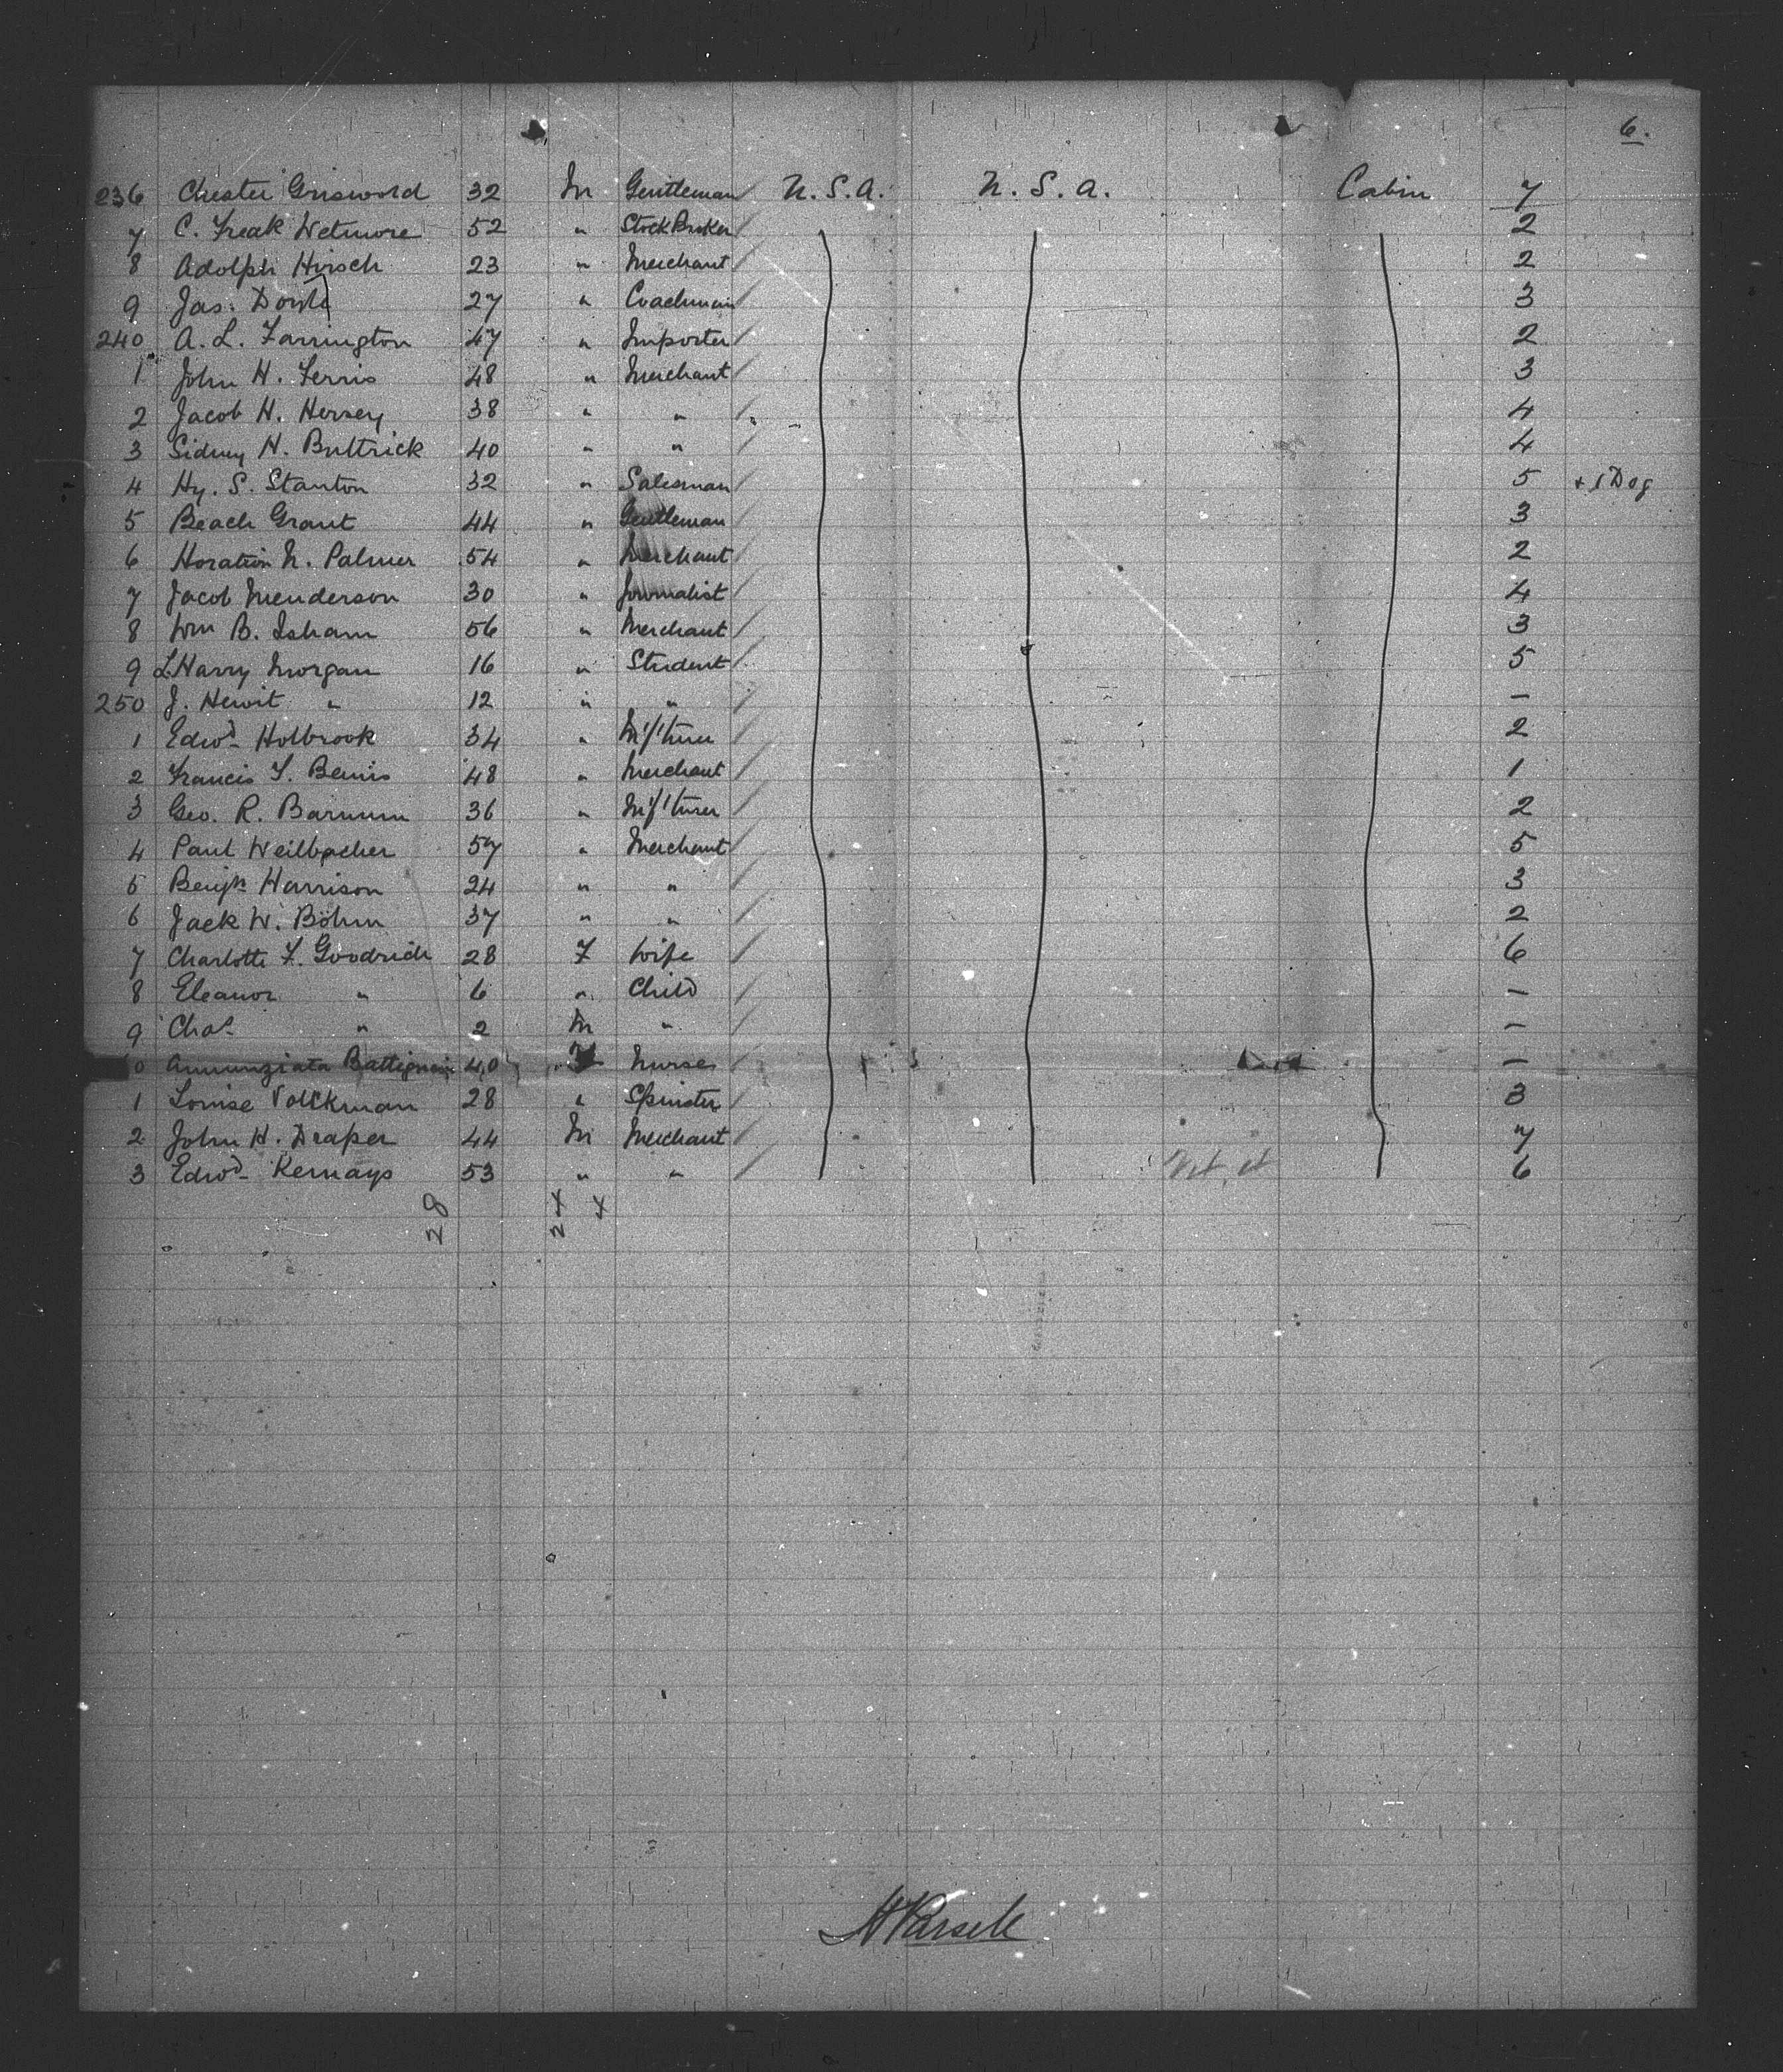 6.
236 Chester Griswold 32 M Gentleman / U.S.A. U.S.A. Cabin 7
7 C. Freak Wetmore 52 " Stock Broker / 2
8 Adolph Hirsch 23 " Merchant / 2
9 Jas. Doyle 27 " Coachman / 3
240 A. L. Farrington 47 " Importer / 2
1 John H. Ferris 48 " Merchant / 3
2 Jacob H. Hersey 38 " " / 4
3 Sidney H. Buttrick 40 " " / 4
4 Hy. S. Stanton 32 " Salesman / 5 + 1 Dog
5 Beach Grant 44 " Gentleman / 3
6 Horation N. Palmer 54 " Merchant / 2
7 Jacob Menderson 30 " Journalist / 4
8 Wm B. Isham 56 " Merchant / 3
9 L. Harry Morgan 16 " Student / 5
250 J. Hewit " 12 " " / –
1 Edwd Holbrook 34 " M'f'turer / 2
2 Francis F. Bemis 48 " Merchant / 1
3 Geo. R. Barnum 36 " M'f'turer / 2
4 Paul Weilbacher 57 " Merchant / 5
5 Benjn Harrison 24 " " / 3
6 Jack W. Böhm 37 " " / 2
7 Charlotte F. Goodrich 28 F Wife / 6
8 Eleanor " 6 " Child / –
9 Chas. " 2 M " / –
0 Annunziata 40 F Nurse / –
1 Louise Volckman 28 " Spinster / 3
2 John H. Draper 44 M Merchant / 7
3 Edwd Kemays 53 " " / 6
28 24 4